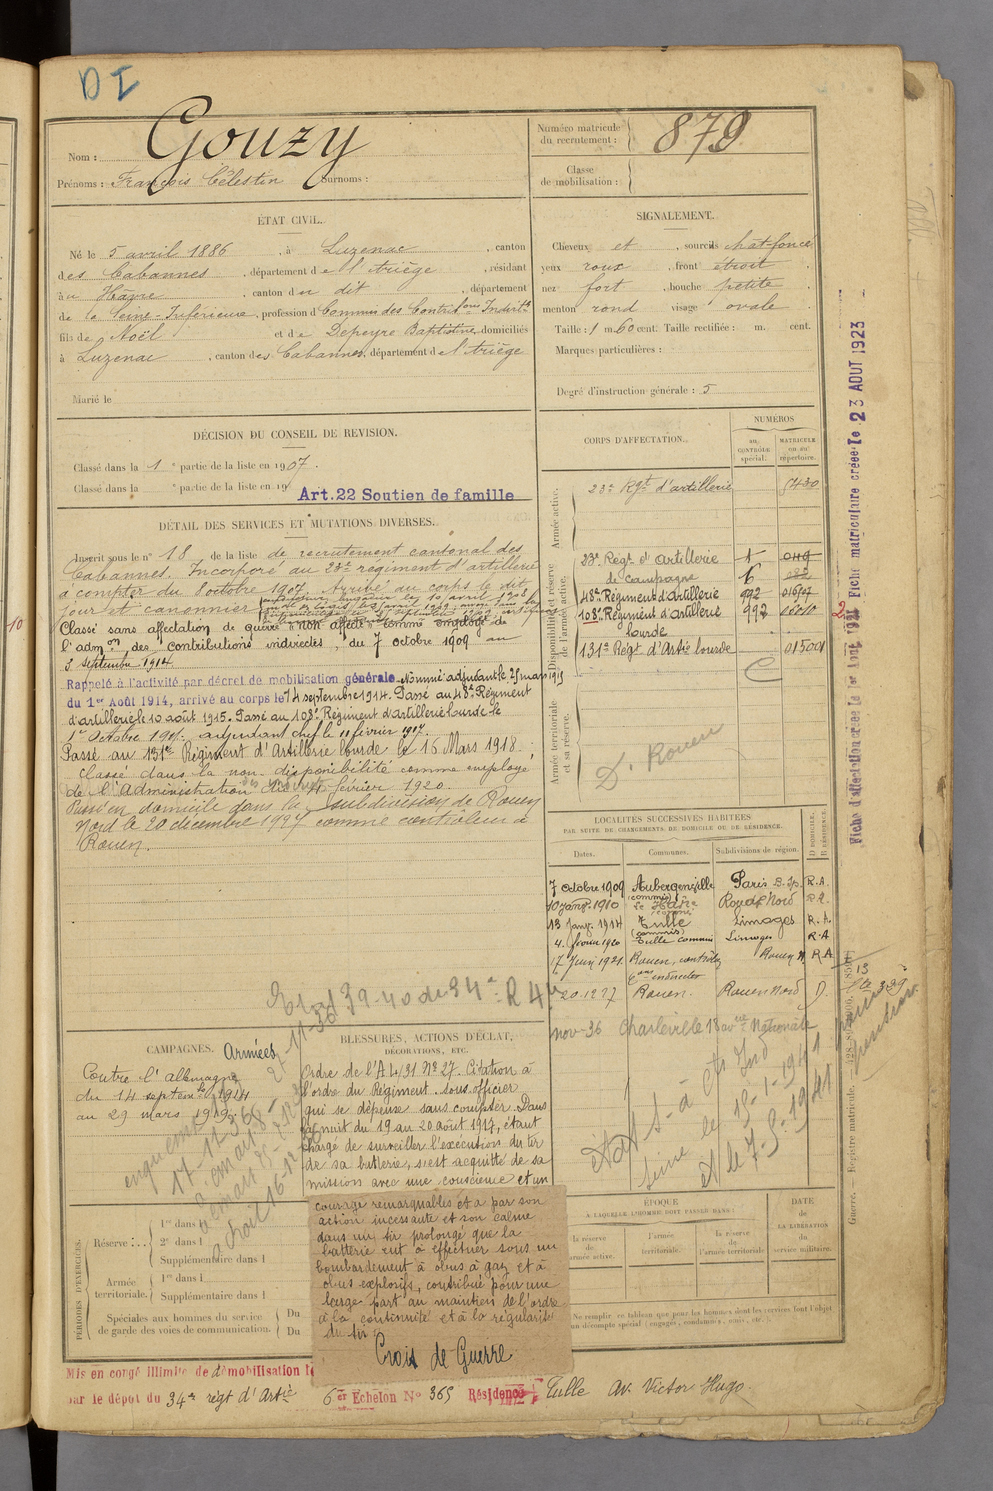 DI
Nom : Gouzy
Prénoms : François Célestin Surnoms :
Numéro matricule du recrutement : 879
Classe de mobilisation :
ÉTAT CIVIL.
Né le 5 avril 1886, à Luzenac, canton
des Cabannes, département de l'Ariège, résidant
au Hâvre, canton du dit, département
de la Seine-Inférieure, profession d Commis des Contrib.ons Indir.tes
fils de Noël et de Depeyre Baptistine, domiciliés
à Luzenac, canton des Cabannes, département de l'Ariège
Marié le
SIGNALEMENT.
Cheveux et, sourcils chât-foncé
yeux roux, front étroit
nez fort, bouche petite
menton rond visage ovale
Taille : 1 m. 60 cent. Taille rectifiée : m. cent.
Marques particulières :
Degré d'instruction générale : 5
DÉCISION DU CONSEIL DE REVISION.
Classé dans la 1e partie de la liste en 1907.
Classé dans la e partie de la liste en 19
Art. 22 Soutien de famille
DÉTAIL DES SERVICES ET MUTATIONS DIVERSES.
Inscrit sous le n° 18 de la liste de recrutement cantonal des
Cabannes. Incorporé au 23e régiment d'artillerie
à compter du 8 octobre 1907. Arrivé au corps le dit
jour et canonnier
Classé sans affectation de guerre "non affecté" comme employé de
l'adm.on des contributions indirectes, du 7 octobre 1909 au
3 septembre 1914.
Rappelé à l'activité par décret de mobilisation générale Nommé adjudant le 25 mars 1915
du 1er Août 1914, arrivé au corps le 14 septembre 1914. Passé au 48e Régiment
d'artillerie le 10 août 1915. Passé au 108e Régiment d'Artillerie Lourde le
1er Octobre 1915. adjudant chef le 11 février 1917.
Passé au 131e Régiment d'Artillerie lourde le 16 Mars 1918.
Classé dans la non disponibilité comme employé
de l'Administration des février 1920.
Passé en domicile dans la subdivision de Rouen
Nord le 20 décembre 1927 comme contrôleur à
Rouen.
10
CORPS D'AFFECTATION.
NUMÉROS
au CONTRÔLE spécial.
MATRICULE ou au répertoire.
Armée active.
23e Rgt d'artillerie 5430
Disponibilité et réserve de l'armée active.
23e Régt d'Artillerie 1 049
de Campagne 6
48e Régiment d'Artillerie 992 01697
108e Régiment d'Artillerie 992 06010
lourde
131e Régt d'Artie lourde 015001
Armée territoriale et sa réserve.
D. Rouen
Fiche matriculaire créée le 23 AOUT 1923
LOCALITÉS SUCCESSIVES HABITÉES
PAR SUITE DE CHANGEMENTS DE DOMICILE OU DE RÉSIDENCE.
Dates. Communes. Subdivisions de région. D DOMICILE. R RÉSIDENCE.
7 octobre 1909 Aubergenville (commis) Paris R.A.
10 janv. 1910 Le Hâvre (commis) Rouen Nord R.R.
13 Janv. 1914 Tulle (commis) Limoges R.A.
4 février 1920 Tulle commis Limoges R.A
17 Juin 1921 Rouen, contrôleur Rouen N. R.A
20.12.27 Rouen. Rouen Nord D.
nov-36 Charleville 18 av.nue Nationale
Etat 39-40 du 34e R
CAMPAGNES. Armées
Contre l'allemagne
du 14 septembre 1914
au 29 mars 1919.
BLESSURES, ACTIONS D'ÉCLAT,
DÉCORATIONS, ETC.
Ordre de l'AL/31 N° 27. Citation à
l'ordre du Régiment. Sous-officier
qui se dépense sans compter. Dans
la nuit du 19 au 20 août 1917, étant
chargé de surveiller l'exécution du tir
de sa batterie, s'est acquitté de sa
mission avec une conscience et un
courage remarquables et a par son
action incessante et son calme
dans un tir prolongé que la
batterie eut à effectuer sous un
bombardement à obus à gaz et à
obus explosifs, contribué pour une
large part au maintien de l'ordre
à la continuité et à la régularité
du tir.
Croix de Guerre
PÉRIODES D'EXERCICES.
Réserve : 1re dans l
2e dans l
Supplémentaire dans l
Armée territoriale. 1re dans l
Supplémentaire dans l
Spéciales aux hommes du service
de garde des voies de communication. Du
Du
ÉPOQUE
À LAQUELLE L'HOMME DOIT PASSER DANS :
la réserve de l'armée active.
l'armée territoriale.
la réserve de l'armée territoriale
DATE de LA LIBÉRATION du service militaire.
Ne remplir ce tableau que pour les hommes dont les services font l'objet
d'un décompte spécial (engagés, condamnés, omis, etc.).
Guerre. — Registre matricule.
Mis en congé illimité de démobilisation
par le dépôt du 34e régt d'Artie 6e Echelon N° 365 Résidence Tulle Av. Victor Hugo.